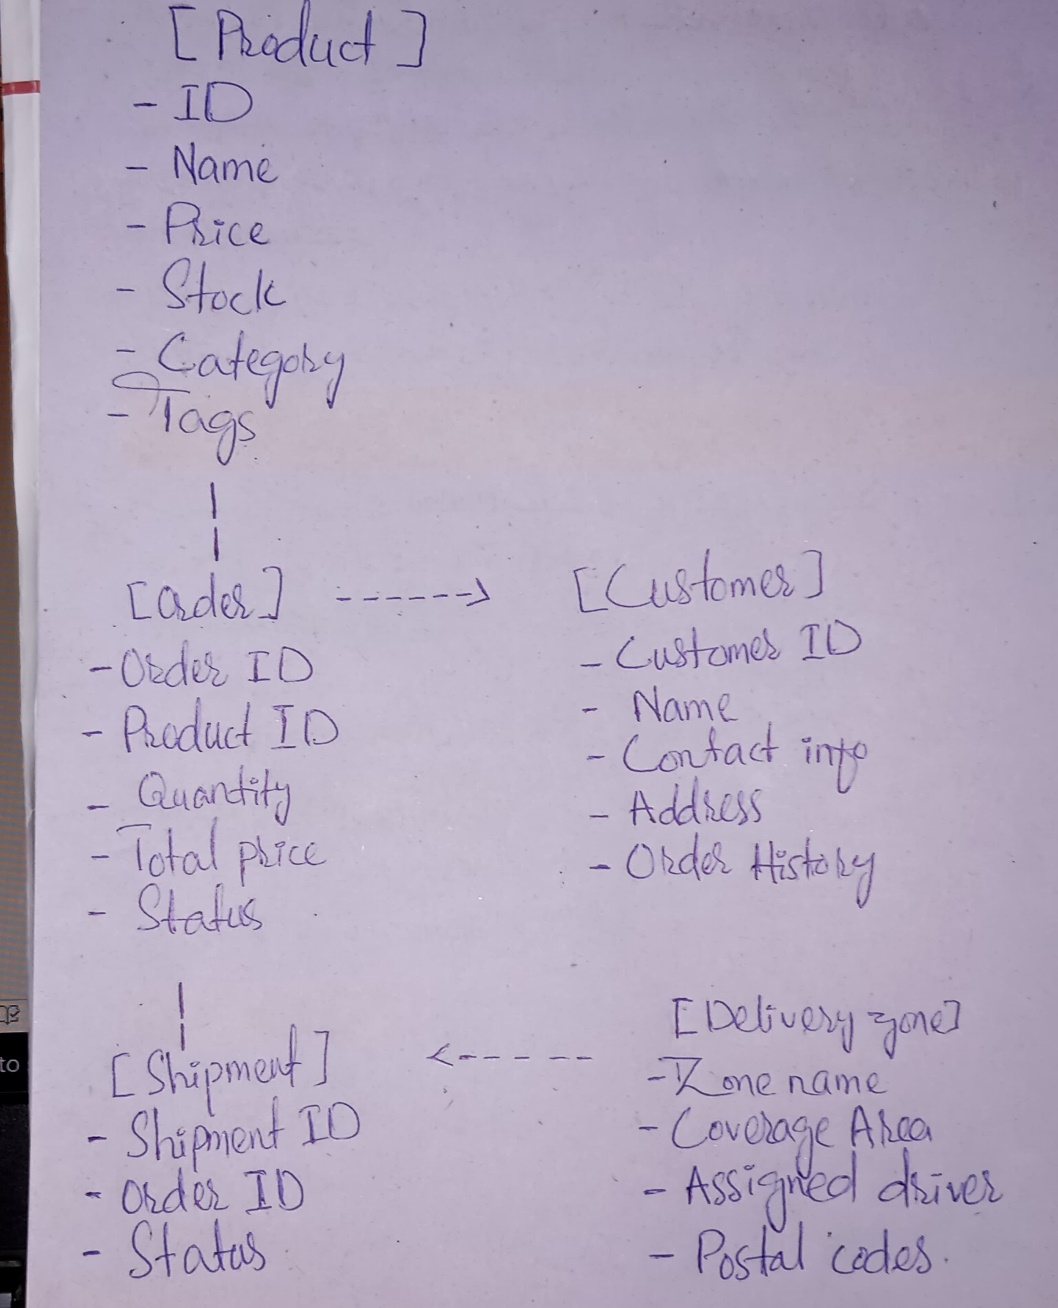 [Product]
- ID
- Name
- Price
- Stock
- Category
- Tags
[Order] ------> [Customer]
- Order ID
- Product ID
- Quantity
- Total price
- Status
- Customer ID
- Name
- Contact info
- Address
- Order History
[Shipment] <----- [Delivery zone]
- Shipment ID
- Order ID
- Status
- Zone name
- Coverage Area
- Assigned driver
- Postal codes.
to